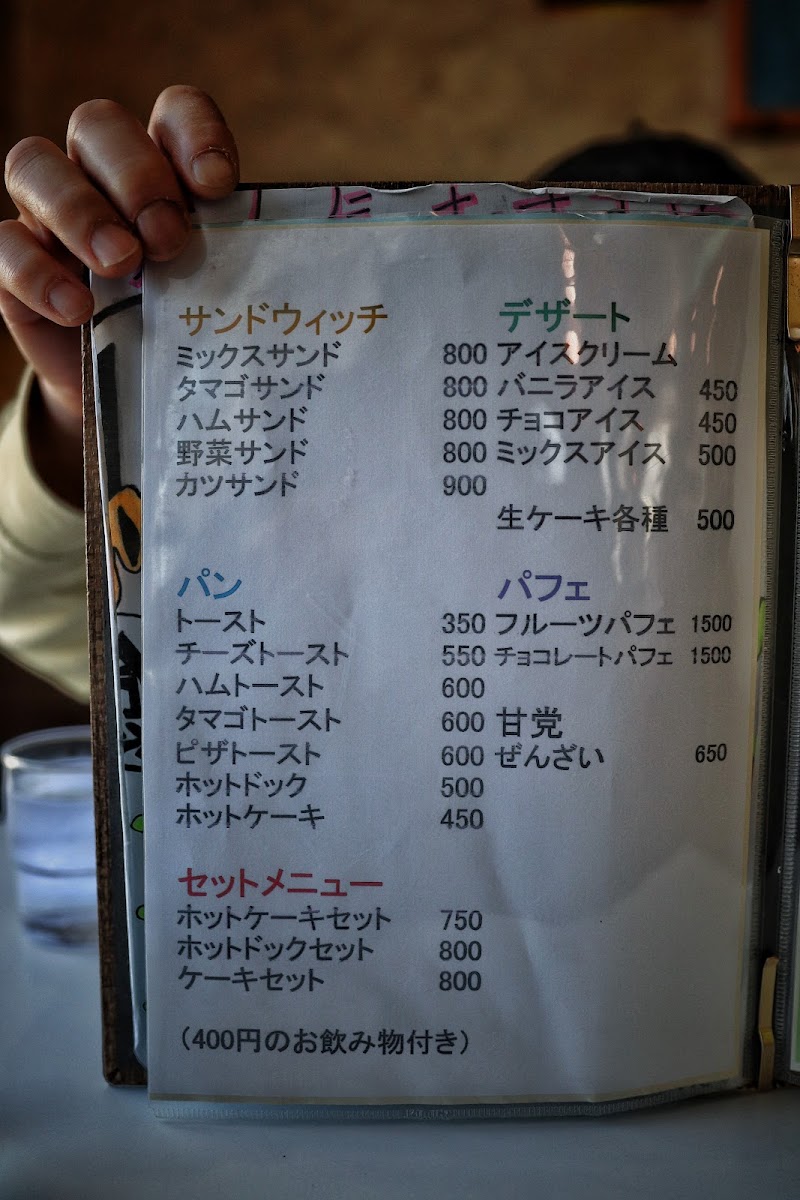 サンドウィッチ
ミックスサンド 800
タマゴサンド 800
ハムサンド 800
野菜サンド 800
カツサンド 900
パン
トースト 350
チーズトースト 550
ハムトースト 600
タマゴトースト 600
ピザトースト 600
ホットドック 500
ホットケーキ 450
セットメニュー
ホットケーキセット 750
ホットドックセット 800
ケーキセット 800
（400円のお飲み物付き）
デザート
アイスクリーム
バニラアイス 450
チョコアイス 450
ミックスアイス 500
生ケーキ各種 500
パフェ
フルーツパフェ 1500
チョコレートパフェ 1500
甘党
ぜんざい 650